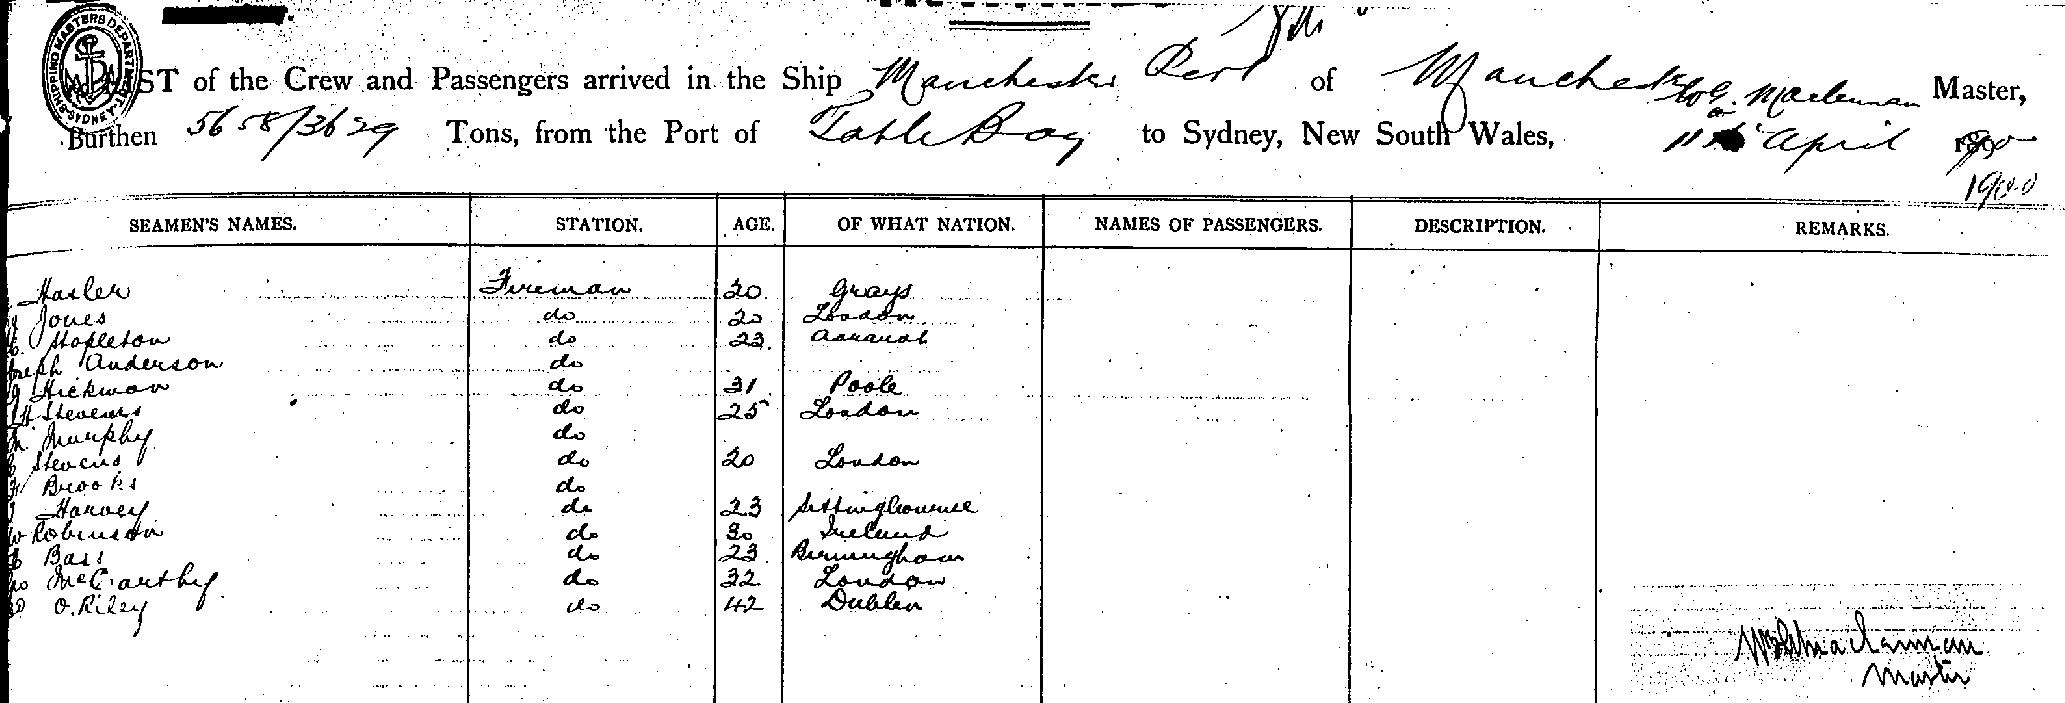 SHIPPING MASTERS DEPARTMENT SYDNEY
LIST of the Crew and Passengers arrived in the Ship Manchester Port of Manchester Master,
Burthen 5658/3629 Tons, from the Port of Table Bay to Sydney, New South Wales, 11th April
1900
SEAMEN'S NAMES. STATION. AGE. OF WHAT NATION. NAMES OF PASSENGERS. DESCRIPTION. REMARKS.
Hasler Fireman 20 Grays
Jones do 20 London
Stapleton do 23
Anderson do
Hickman do 31 Poole
H Stevens do 25 London
Murphy do
Stevens do 20 London
Brooks do
Harvey do 23 Sittingbourne
W Robinson do 30 Ireland
Bass do 23 Birmingham
McCarthy do 32 London
O.Riley do 42 Dublin
Master